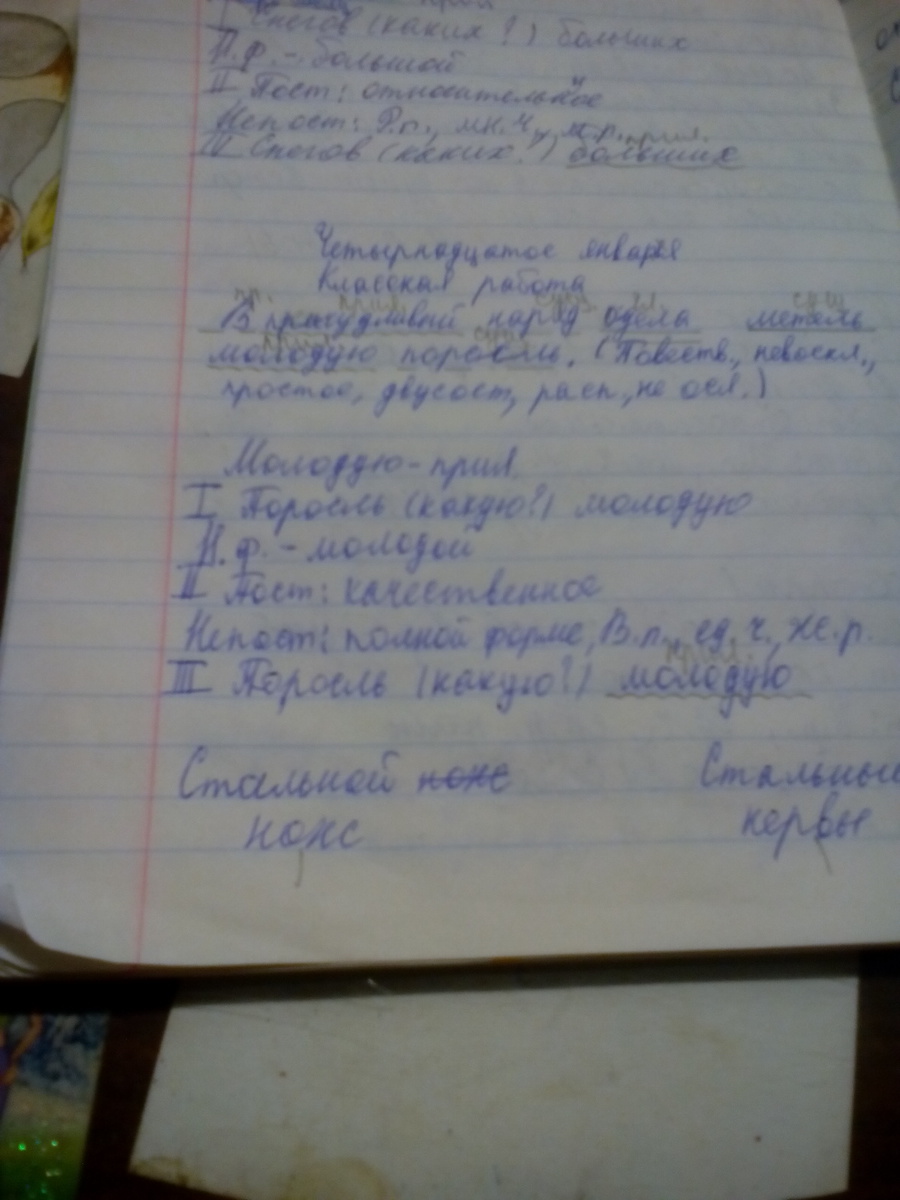 I Снегов (каких?) больших
Н.ф. - большой
II Пост: относительное
Непост: Р.п., мн.ч.,
прил.
III Снегов (каких?) больших
Четырнадцатое января
Классная работа
пр. прил. сущ. гл. сущ
В причудливый наряд одела метель
прил. сущ
молодую поросль. (Повеств., невоскл.,
простое, двусост, расп., не осл.)
Молодую - прил.
I Поросль (какую?) молодую
Н.ф. - молодой
II Пост: качественное
Непост: полной форме, В.п., ед.ч., ж.р.
прил.
III Поросль (какую?) молодую
Стальной нож Стальные
нож нервы